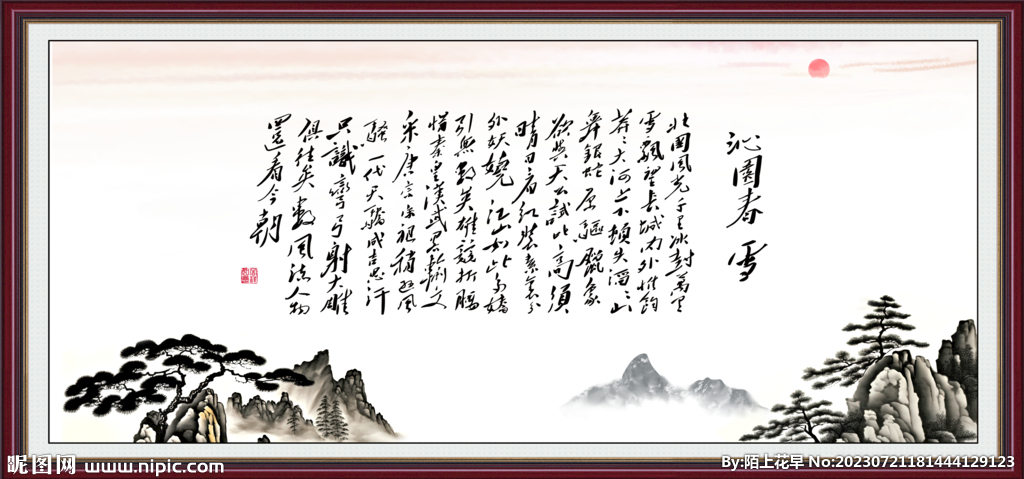 沁園春 雪
北國風光千里冰封萬里
雪飄望长城内外惟餘
莽〻大河上下頓失滔〻山
舞銀蛇原驅臘象
欲與天公試比高須
晴日看红装素裹分
外妖娆江山如此多嬌
引無數英雄競折腰
惜秦皇漢武略輸文
采唐宗宋祖稍逊風
騷一代天驕成吉思汗
只識彎弓射大雕
俱往矣數風流人物
還看今朝
昵图网 www.nipic.com
By:陌上花早 No:20230721181444129123